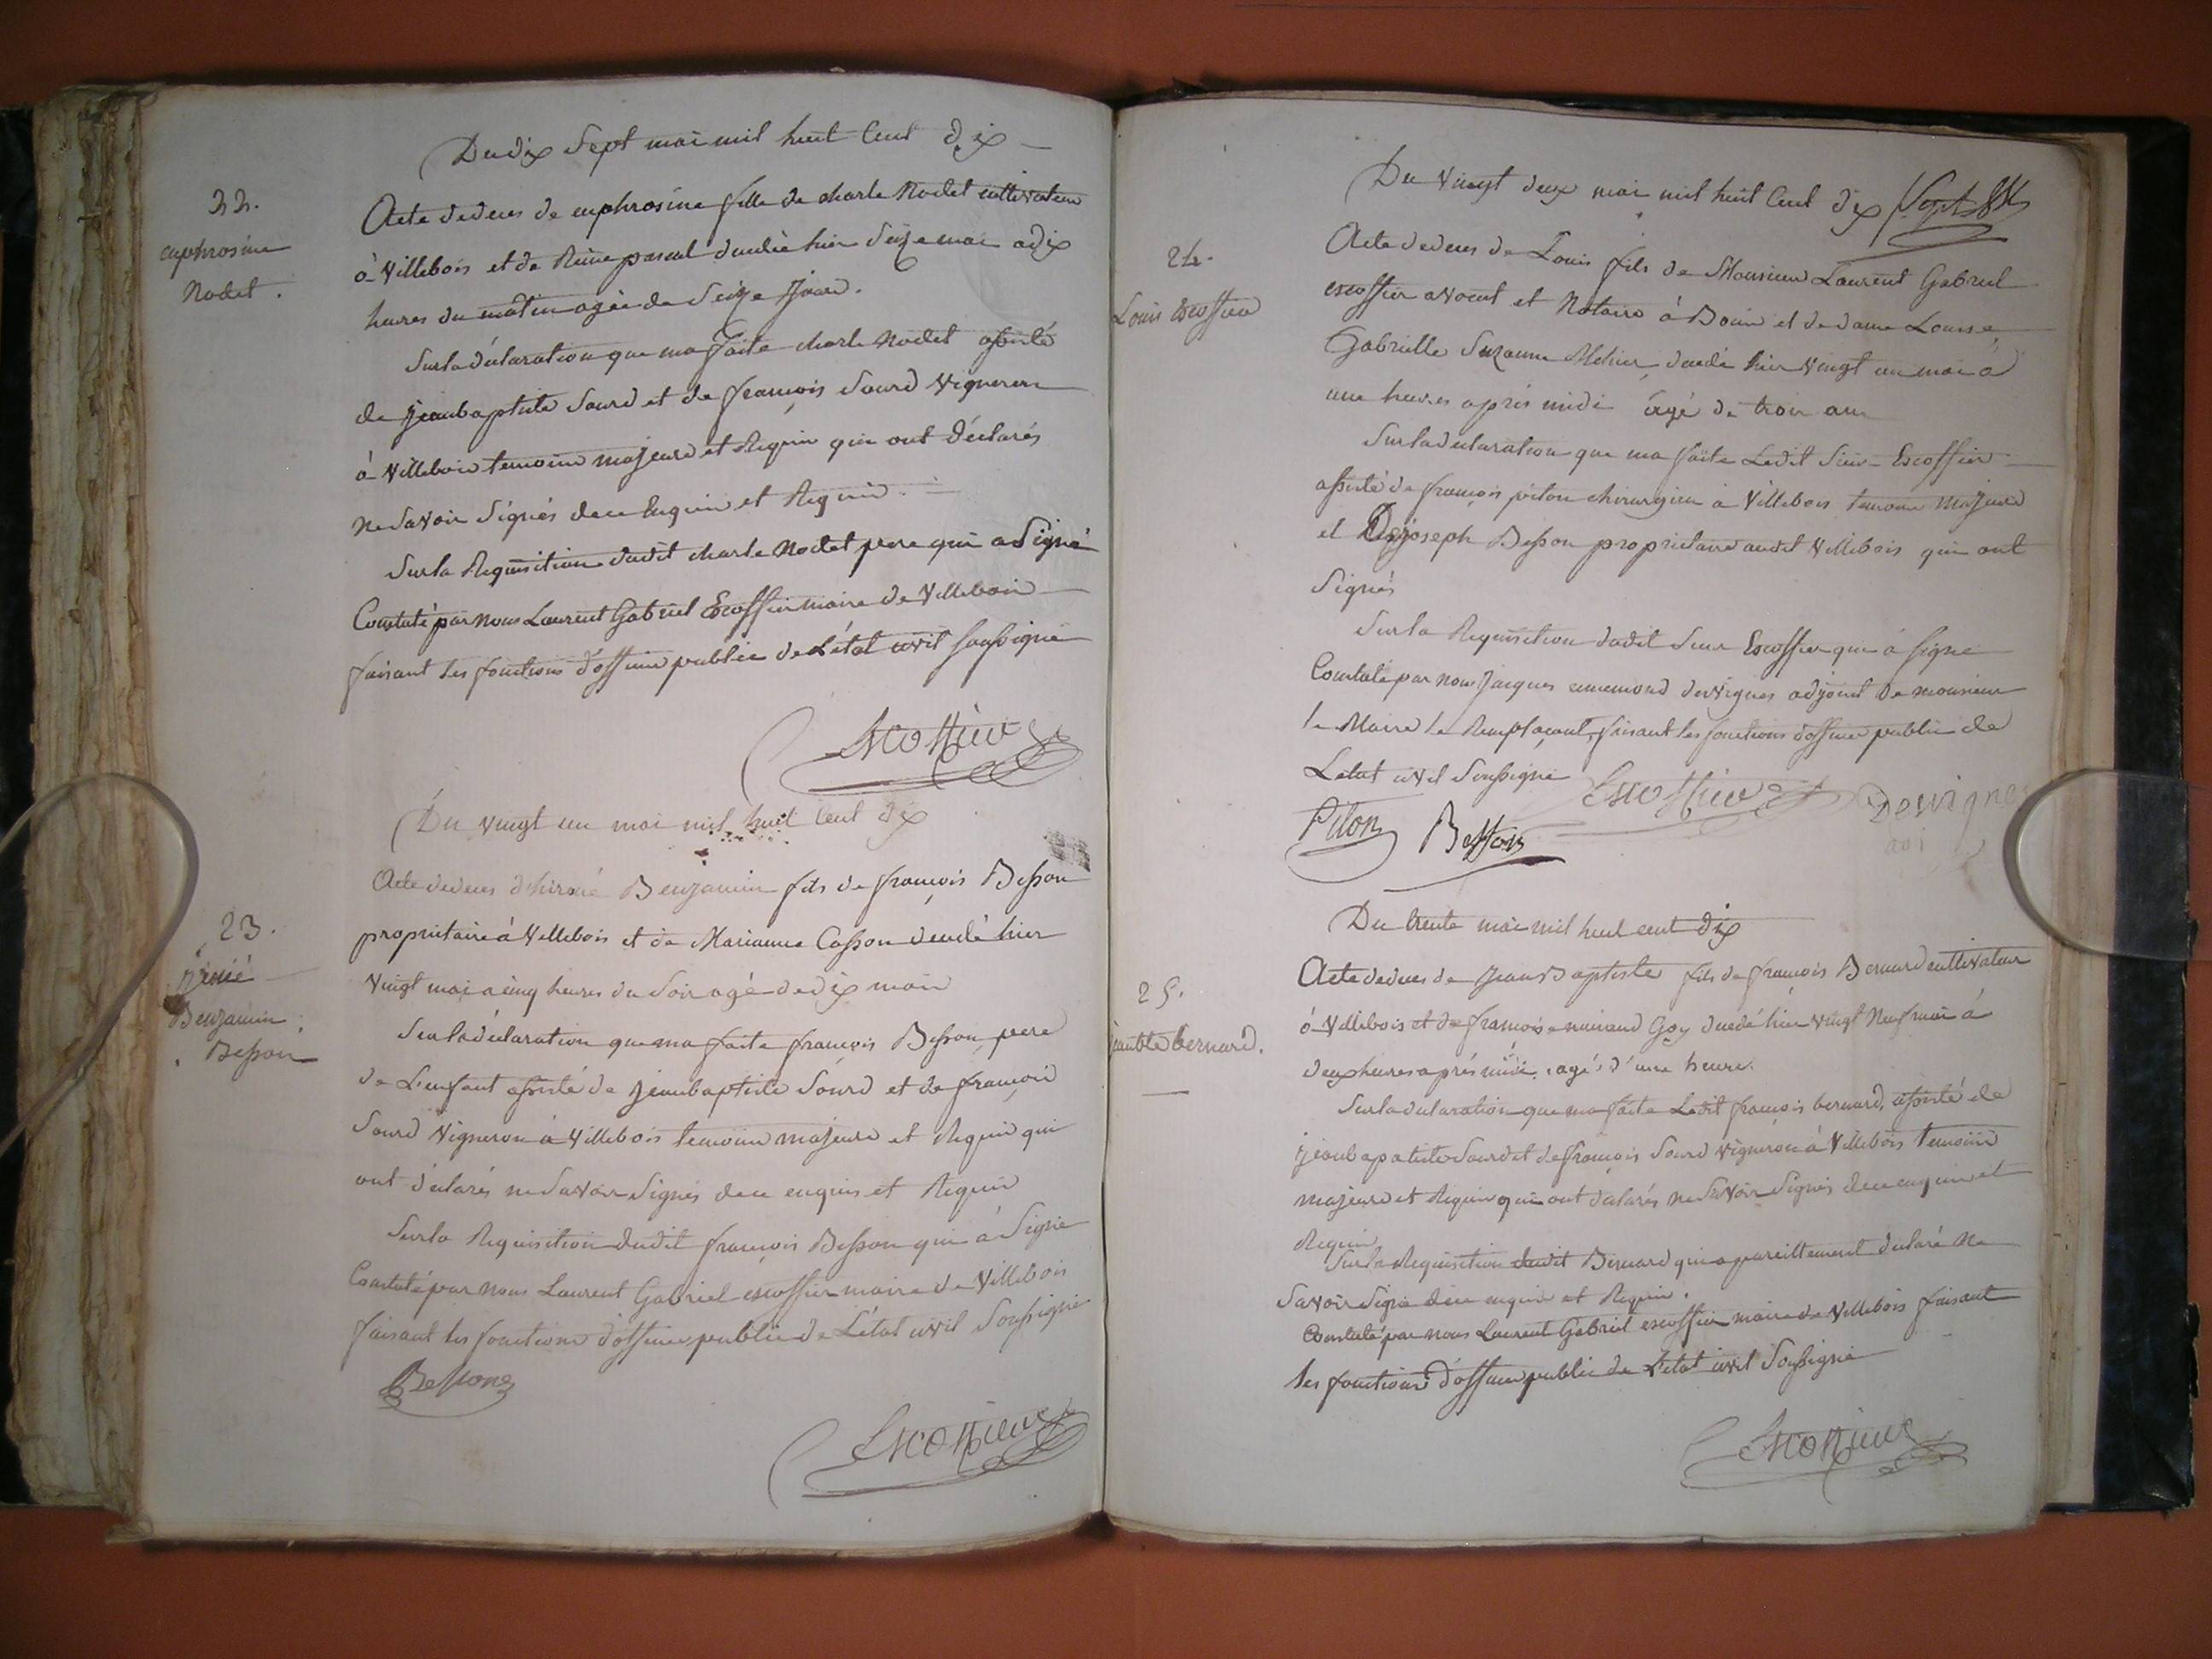 Du dix Sept mai mil huit Cent dix
22.
euphrosine
Nodet.
Acte de deces de euphrosine fille de charle Nodet cultivateur
à Villebois et de Reine pascal decedée hier Seize mai a dix
heures du matin agée de Seize Jours.
Sur la déclaration que ma faite charle Nodet assisté
de jeanbaptiste Sourd et de françois Sourd Vigneron
à Villebois temoins majeurs et Requis qui ont déclarés
ne Savoir Signés de ce Enquis et Requis.
Sur la Requisition dudit charle Nodet pere qui a Signé
Constaté par nous Laurent Gabriel Escoffier maire de Villebois
faisant les fonctions d'officier public de L'état civil soussigné
Escoffier
Du vingt un mai mil huit Cent dix
23.
Benjamin
Besson
Acte de deces Benjamin fils de françois Besson
propriétaire à Villebois et de Marianne Casson decedé hier
Vingt mai a cinq heures du Soir agé de dix mois
Sur la déclaration que ma faite françois Besson pere
de L'enfant assisté de jeanbaptiste Sourd et de françois
Sourd Vigneron à Villebois temoins majeurs et Requis qui
ont déclarés ne Savoir Signés de ce enquis et Requis
Sur la Requisition dudit françois Besson qui à Signé
Constaté par nous Laurent Gabriel escoffier maire de Villebois
faisant les fonctions d'officier public de L'état civil Soussigné
Bessone
Escoffier
Du Vingt deux mai mil huit Cent dix
24.
Louis escoffier
Acte de deces de Louis fils de Monsieur Laurent Gabriel
escoffier avocat et Notaire à et de dame Louise
Gabrielle Suzanne decedé hier Vingt un mai à
une heures après midi agé de trois ans
Sur la declaration que ma faite Ledit Sieur Escoffier
assisté de françois piton chirurgien à Villebois temoins Majeurs
et De joseph Besson proprietaire audit Villebois qui ont
Signés
Sur la Requisition dudit Sieur Escoffier qui à signé
Constaté par nous Jacques ennemond desvignes adjoint de monsieur
le Maire le Remplaçant, faisant les fonctions d'officier public de
L'etat civil Soussigné
Escoffier Desvignes
Piton Besson
Du trente mai mil huit cent dix
25.
jeanbte bernard.
Acte de deces de Jean Baptiste fils de françois Bernard cultivateur
à Villebois et de françoise Goy decedé hier vingt Neuf mai à
deux heures aprés midi. agé d'une heure.
Sur la declaration que ma faite Ledit françois bernard, assisté de
jeanbapatiste Sourd et de françois Sourd vigneron à Villebois temoins
majeurs et Requis qui ont déclarés ne Savoir Signés de ce enquis et
Requis
Sur la Requisition dudit Bernard qui a pareillement declaré ne
Savoir Signé de ce enquis et Requis.
Constaté par nous Laurent Gabriel escoffier maire de Villebois faisant
les fonctions d'officier public de L'etat civil Soussigné
Escoffier